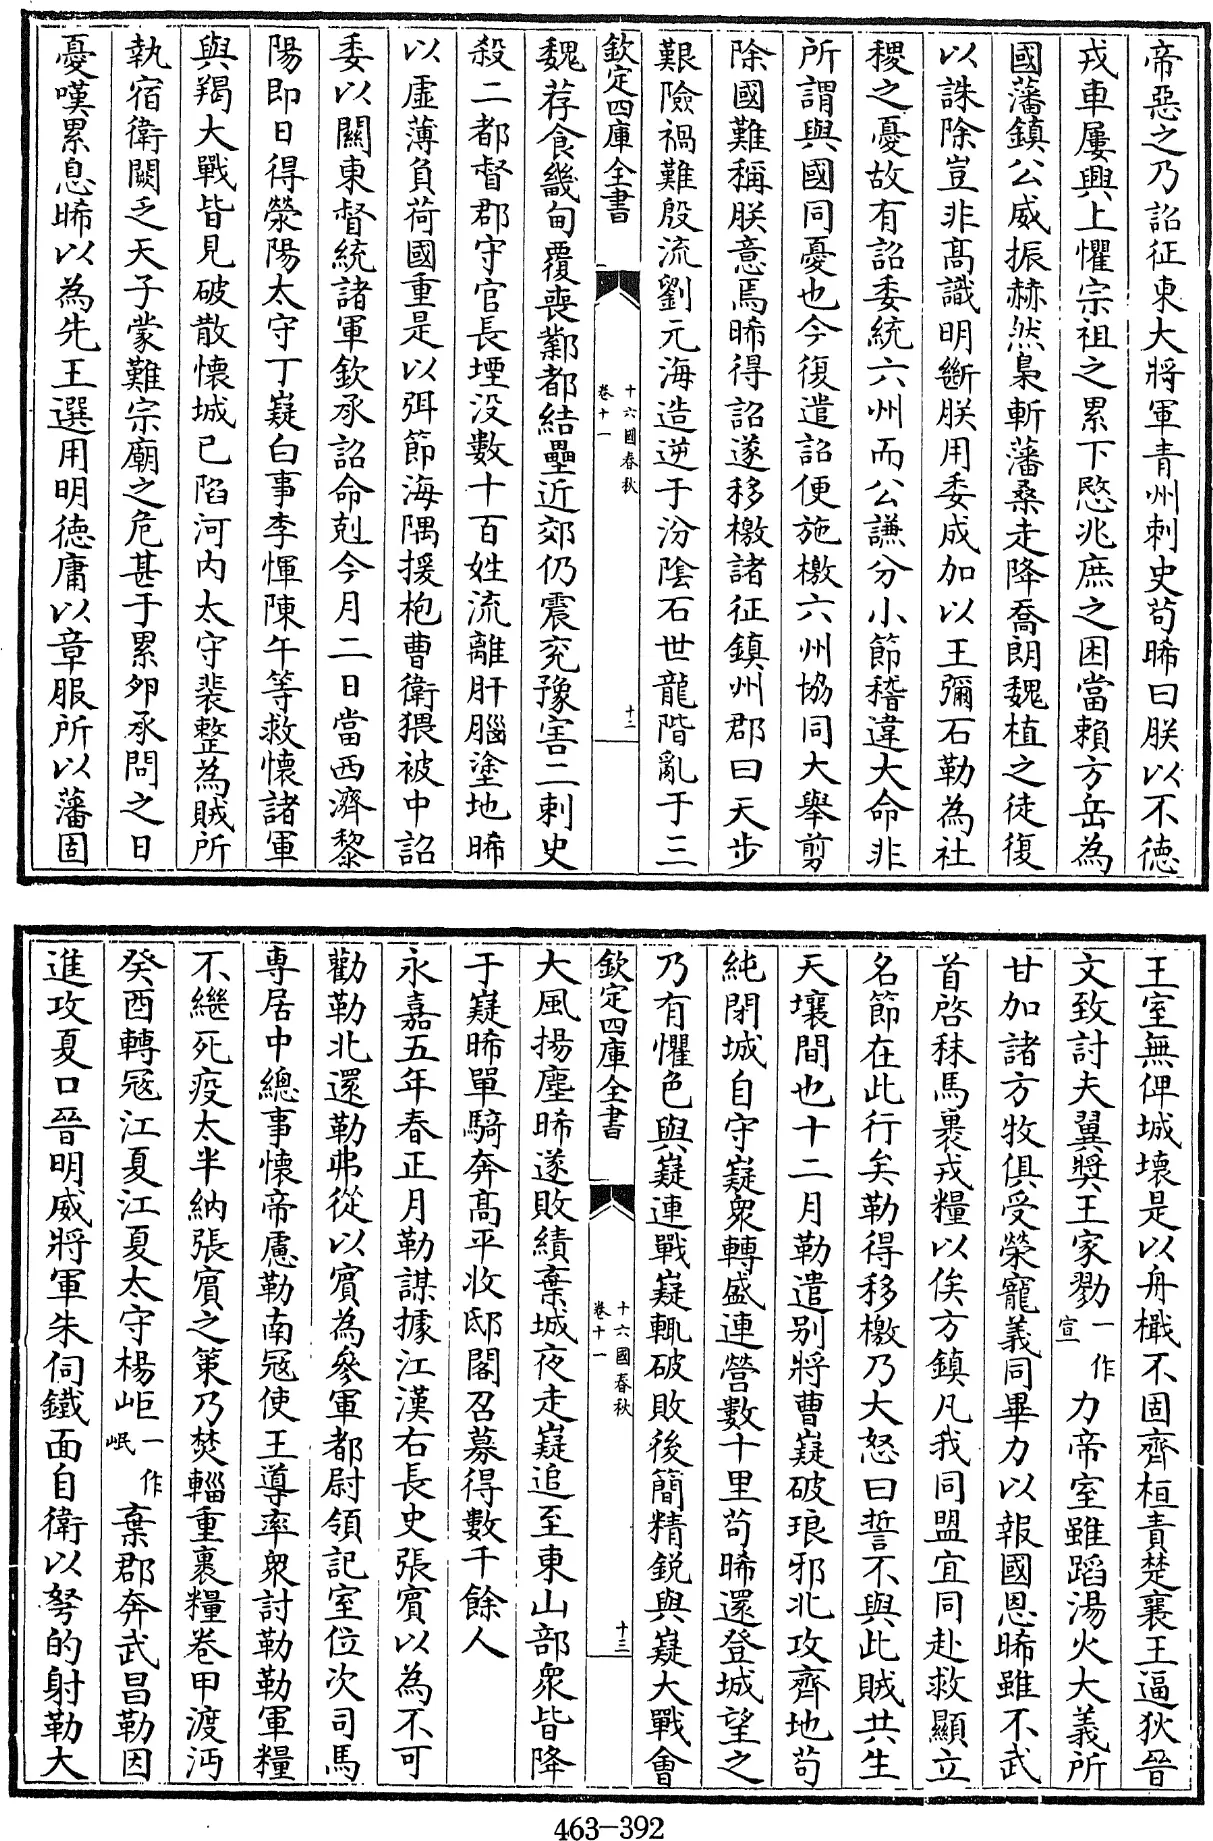 帝惡之乃詔征東大將軍青州刺史茍晞曰朕以不徳
戎車屢興上懼宗祖之累下愍兆庶之困當賴方岳為
國藩鎮公威振赫然梟斬藩桑走降喬朗魏植之徒復
以誅除豈非髙識明斷朕用委成加以王彌石勒為社
稷之憂故有詔委統六州而公謙分小節稽違大命非
所謂與國同憂也今復遣詔便施檄六州協同大舉剪
除國難稱朕意焉晞得詔遂移檄諸征鎮州郡曰天步
艱險禍難殷流劉元海造逆于汾隂石世龍階亂于三
欽定四庫全書
十六國春秋
卷十一
十二
魏荐食畿甸覆喪鄴都結壘近郊仍震兖豫害二刺史
殺二都督郡守官長堙没數十百姓流離肝腦塗地晞
以虛薄負荷國重是以弭節海隅援枹曹衛猥被中詔
委以關東督統諸軍欽承詔命剋今月二日當西濟黎
陽即日得滎陽太守丁嶷白事李惲陳午等救懐諸軍
與羯大戰皆見破散懐城已陷河内太守裴整為賊所
執宿衛闕乏天子蒙難宗廟之危甚于累夘承問之日
憂嘆累息晞以為先王選用明徳庸以章服所以藩固
王室無俾城壊是以舟檝不固齊桓責楚襄王逼狄晉
文致討夫翼奨王家勠一作宣力帝室雖蹈湯火大義所
甘加諸方牧俱受榮寵義同畢力以報國恩晞雖不武
首啓秣馬裹戎糧以俟方鎮凡我同盟宜同赴救顯立
名節在此行矣勒得移檄乃大怒曰誓不與此賊共生
天壤間也十二月勒遣别將曹嶷破琅邪北攻齊地茍
純閉城自守嶷衆轉盛連營數十里茍晞還登城望之
乃有懼色與嶷連戰嶷輒破敗後簡精鋭與嶷大戰會
欽定四庫全書
十六國春秋
卷十一
十三
大風揚塵晞遂敗績棄城夜走嶷追至東山部衆皆降
于嶷晞單騎奔髙平收邸閣召募得數千餘人
永嘉五年春正月勒謀據江漢右長史張賓以為不可
勸勒北還勒弗從以賓為參軍都尉領記室位次司馬
専居中總事懐帝慮勒南冦使王導率衆討勒勒軍糧
不繼死疫太半納張賓之策乃焚輜重裹糧卷甲渡沔
癸酉轉冦江夏江夏太守楊岠一作岷棄郡奔武昌勒因
進攻夏口晉明威將軍朱伺鐵面自衛以弩的射勒大
463-392